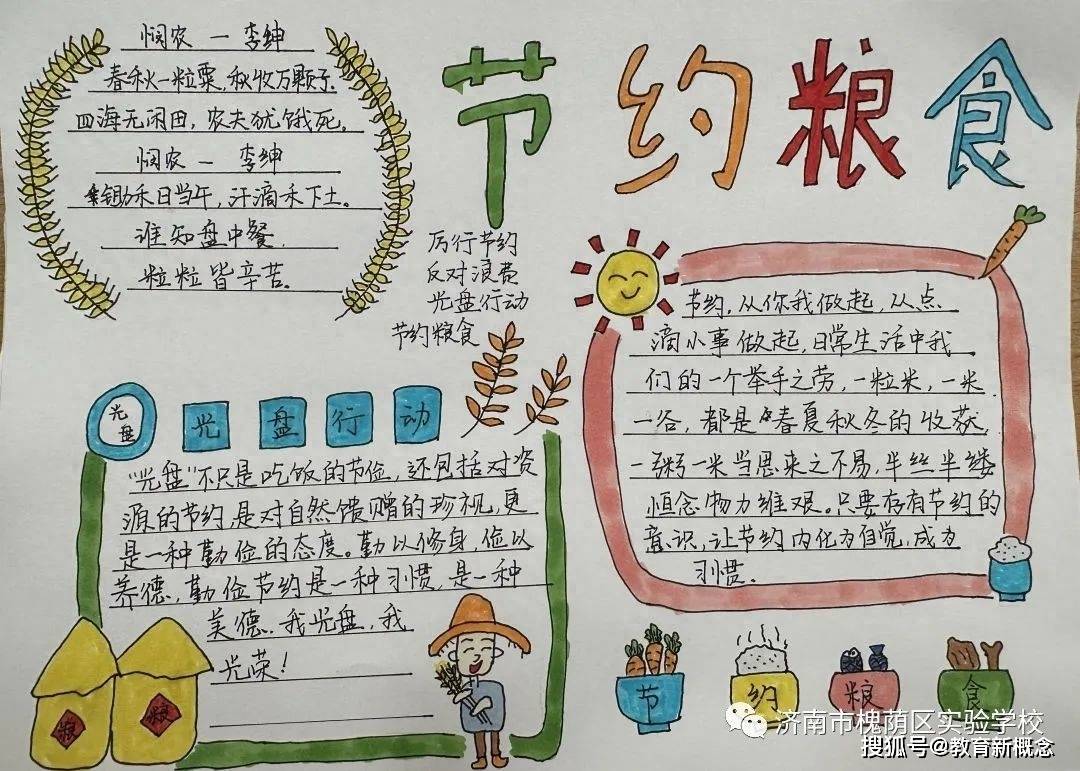 节约粮食
悯农 一 李绅
春秋一粒粟，秋收万颗子.
四海无闲田，农夫犹饿死。
悯农 一 李绅
锄禾日当午，汗滴禾下土。
谁知盘中餐.
粒粒皆辛苦.
厉行节约
反对浪费
光盘行动
节约粮食
节约，从你我做起，从点
滴小事做起，日常生活中我
们的一个举手之劳，一粒米，一米
一谷，都是春夏秋冬的收获，
一粥一米当思来之不易，半丝半缕
恒念物力维艰。只要存有节约的
意识，让节约内化为自觉，成为
习惯.
光盘
光盘行动
“光盘”不只是吃饭的节俭，还包括对资
源的节约，是对自然馈赠的珍视，更
是一种勤俭的态度。勤以修身，俭以
养德，勤俭节约是一种习惯，是一种
美德.我光盘，我
光荣！
粮 粮
节 约 粮 食
济南市槐荫区实验学校
搜狐号@教育新概念